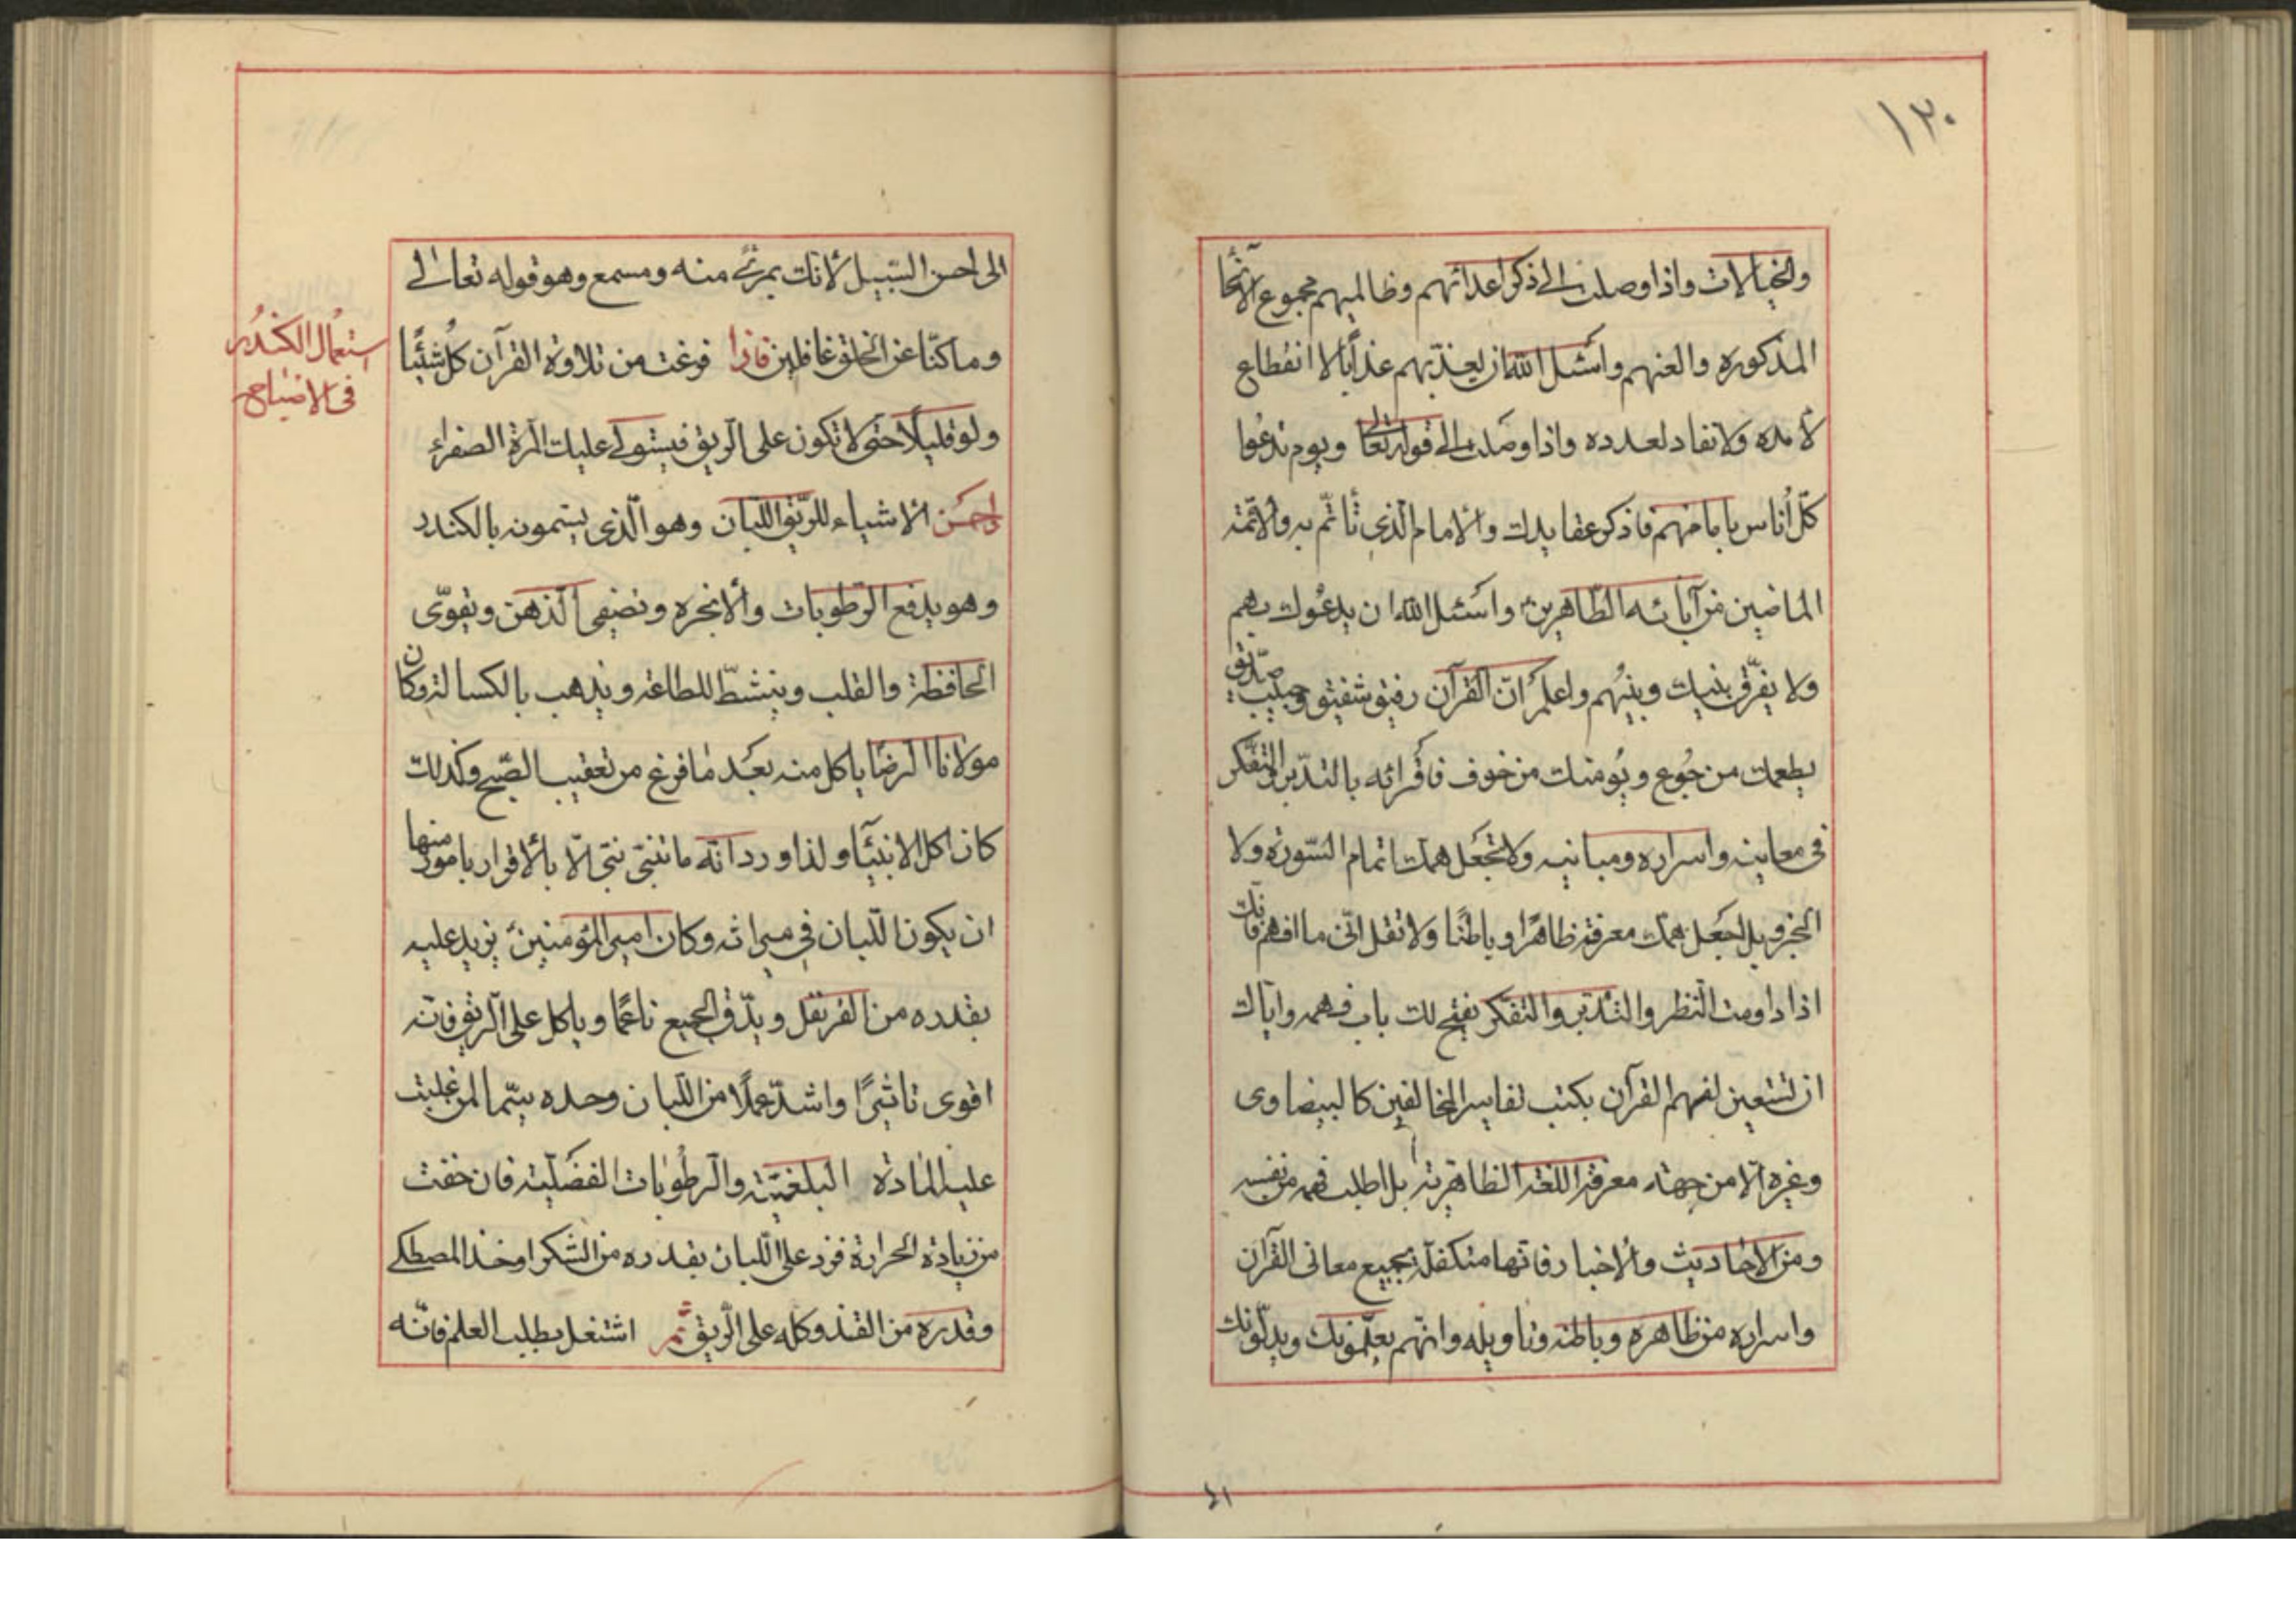 ١٣٠
والخيالات واذا وصلت الى ذكر اعدائهم وظالميهم مجموع الأنحا
المذكوره والعنهم واسئل الله ان يعذبهم عذاباً لا انقطاع
لأمده ولا نفاد لعدده واذا وصلت الى قوله تعالى ويوم ندعوا
كلّ أناس بامامهم فاذكر عقايدك والامام الّذي تأتمّ به والائمّة
الماضين من آبائه الطّاهرين واسئل الله ان يدعوك بهم
ولا يفرّق بينك وبينهم واعلم انّ القرآن رفيق شفيق وحبيب صدّيق
يطعمك من جُوع ويُومنك من خوف فاقرائه بالتدبّر والتفكّر
فى معانيه واسراره ومبانيه ولا تجعل همك اتمام السّورة ولا
الجزو بل اجعل همك معرفة ظاهرًا وباطنًا ولا تقل انّى ما افهم فانّك
اذا داومت النّظر والتّدبّر والتفكّر يفتح لك باب فهمه وايّاك
ان تستعين لفهم القرآن بكتب تفاسير المخالفين كالبيضاوى
وغيره الّا من جهة معرفة اللغة الظاهرية بل اطلب فهمه من نفسه
ومن الاحاديث والاخبار فانّها متكفلة بجميع معانى القرآن
واسراره من ظاهره وباطنه وتاويله وانّهم يعلّمونك ويدلّونك
الى احسن السّبيل لانك بمرئى منه ومسمع وهو قوله تعالى
وما كنّا عن الخلق غافلين فاذا فرغت من تلاوة القرآن كُل شيئًا
ولو قليلًا حتى لا تكون على الرّيق فيستولى عليك المرّة الصفراء
واحسن الاشياء للرّيق اللّبان وهو الّذى يسمونه بالكندر
وهو يدفع الرّطوبات والابخره ويصفى الذهن ويقوّى
الحافظة والقلب وينشّط للطاعة ويذهب بالكسالة وكان
مولانا الرضا ياكل منه بعد ما فرغ من تعقيب الصّبح وكذلك
كان اكل الانبيآء ولذا ورد انّه ما تنبّى نبّى الّا بالاقرار بامور منها
ان يكون اللّبان في ميراثه وكان امير المؤمنين يزيد عليه
بقدره من القرنفل ويدّق الجميع ناعمًا وياكل على الرّيق فانّه
اقوى تاثيرًا واشدّ عملًا من اللّبان وحده سيّما لمن غلبت
عليه المادة البلغميّة والرّطُوبات الفضليّة فان خفت
من زيادة الحرارة فزد على اللّبان بقدره من السّكر او خذ المصطكى
وقدره من القند وكله على الرّيق ثمّ اشتغل بطلب العلم فانّه
استعمال الكندُر
فى الاصباح